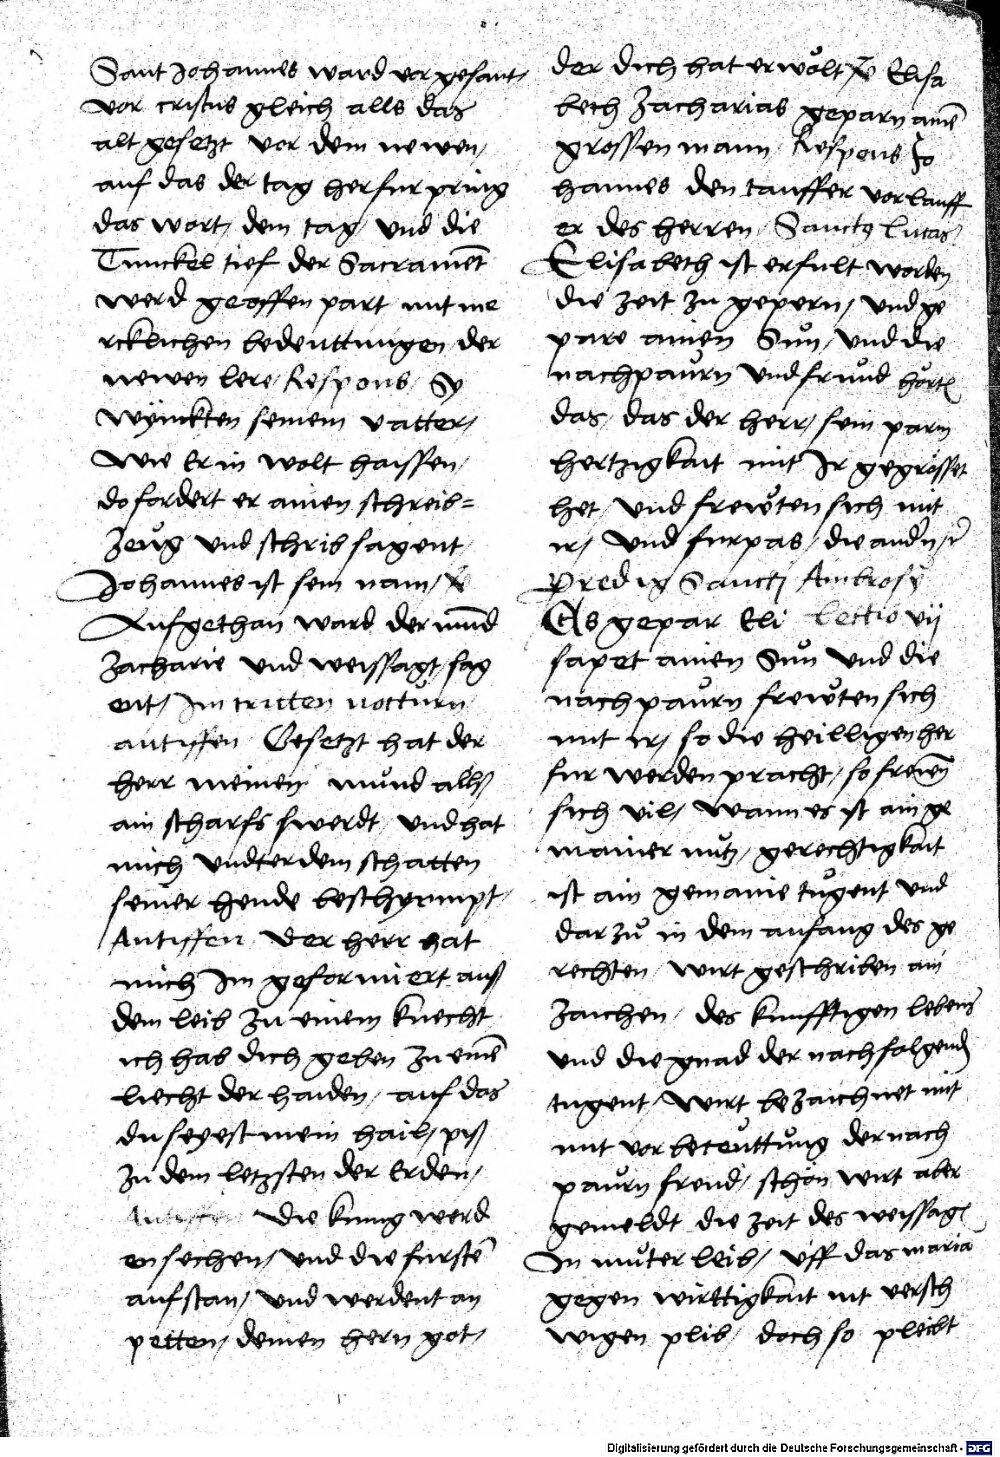 Sant Johannes ward vor gesant,
vor cristus gleich alls das
alt gesetzt vor dem newen,
auf das der tag herfur pring
das wort, dem tag, und die
Tunckel tief der Sacrament
werd geoffenpart mit me
rcklichen bedeuttungen der
newen lere, Respons, Sy
wynckten seinem vatter,
wie Er in wolt haissen,
do fordert er ainen schreib=
zeug und schrib sagent,
Johannes ist sein nam,
Aufgethan ward der mund
Zacharie und weissagt, sag
ent, Im tritten notturn
antiffen Gesetzt hat der
herr meinen mund alls,
ain scharfs swerdt, und hat
mich undter dem schatten
seiner hende beschyrmpt,
Antiffen, Der herr hat
mich Im geformiert auß
dem leib zu einem knecht
ich hab dich geben zu einē
liecht der haiden, auf das
du seyest mein hail, piß
zu dem letzsten der Erden,
Antiffen die kunig werd
en sechen, und die furstē
aufstan, und werdent an
petten, deinen hern got,
der dich hat erwolt, Elisa
beth Zacharias geparn ainē
grossen mann, Respons Jo
hannes den tauffer vorlauff
er des herren, Sanctus Lucas,
Elisabeth ist erfult worden
die zeit zu gepern, und ge
pare ainen Sun, und die
nachpaurn und frund hort
das, das der herr, sein parm
hertzigkait mit Ir gegrosset
het, und frewten sich mit
ir, und furpas, die andn,
Predig Sancti Ambrosy
Es gepar Eli lectio vij
sapet ainen Sun und die
nachpaurn frewten sich
mit ir, so die heilligen her
fur werden pracht, so frewn
sich vil, wann es ist ain ge
mainer nutz, gerechtigkait
ist ain gemaine tugent und
darzu in dem anfang des ge
rechten, wirt geschriben ain
zaichen, des kunfftigen lebens
und die gnad der nachfolgend
tugent, wirt bezaichnet mit
mit vorbeteuttung der nach
paurn freud, schon wirt aber
gemeldt die zeit des weissag
In muter leib, uff das maria
gegen wirttigkait nit versch
wigen plib, doch so pleibt
Digitalisierung gefördert durch die Deutsche Forschungsgemeinschaft - DFG